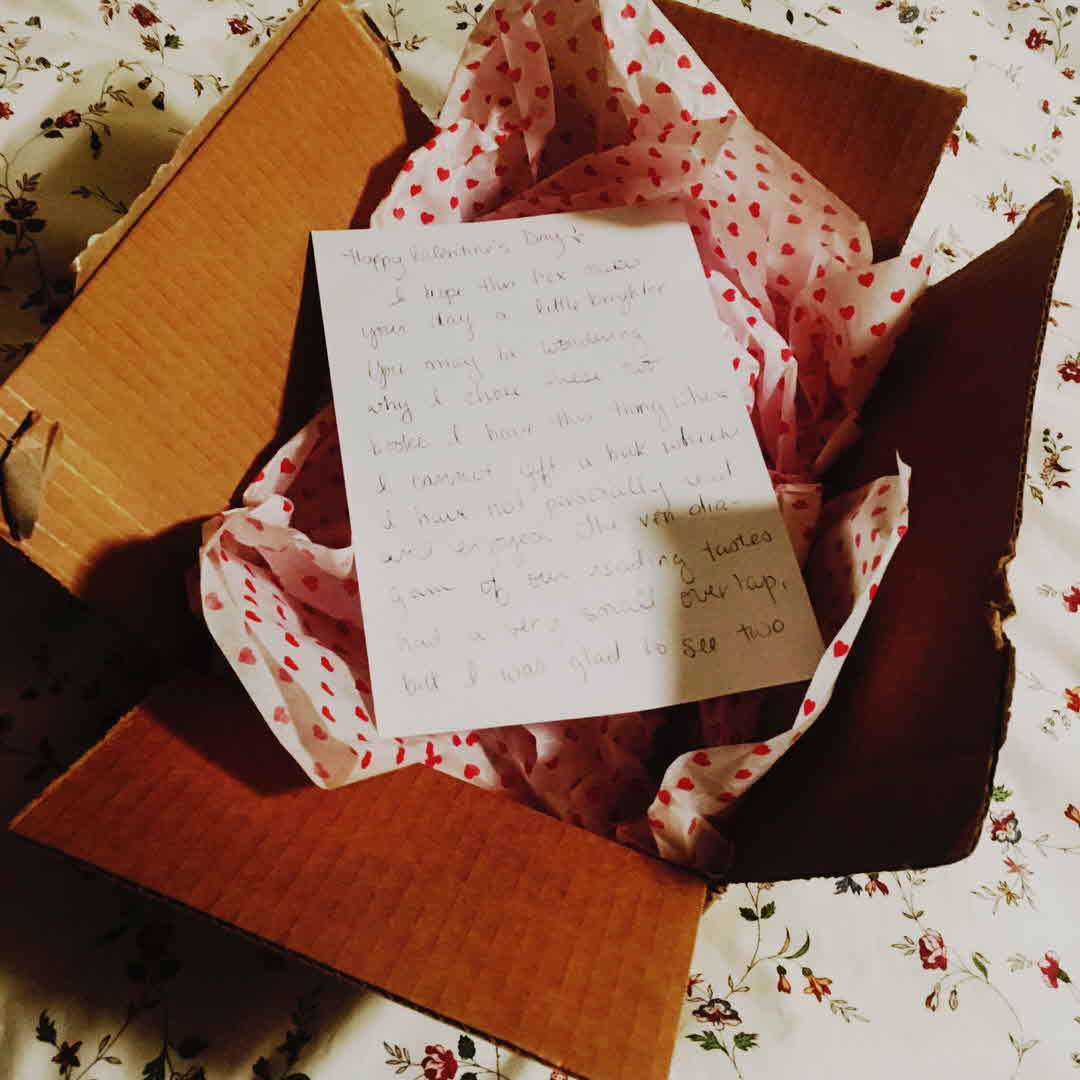 Happy Valentine's Day!
I hope this box makes
your day a little brighter
You may be wondering
why I chose these
books. I have this thing where
I cannot gift a book which
I have not personally read
and enjoyed. The ven dia-
gam of our reading tastes
had a very small overlap,
but I was glad to see two